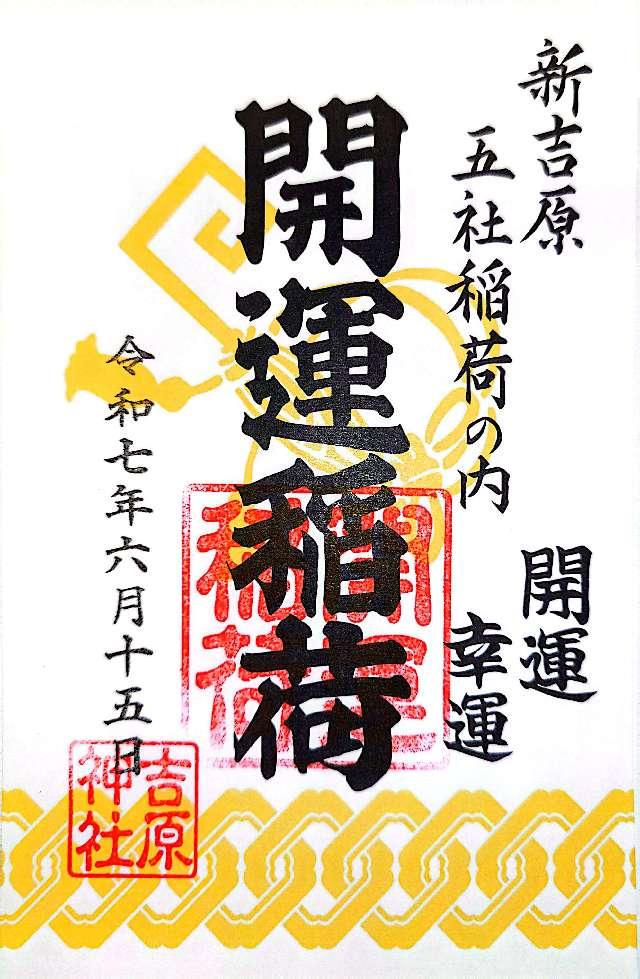 新吉原
五社稲荷の内
開運
幸運
開運稲荷
開運
稲荷
令和七年六月十五日
吉原
神社